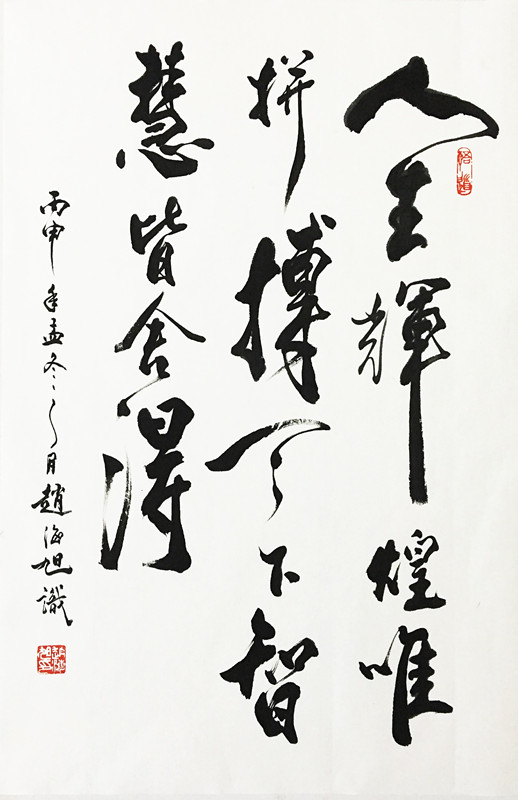 人生輝煌唯
拼搏天下智
慧皆舍得
丙申年孟冬之月趙海旭識